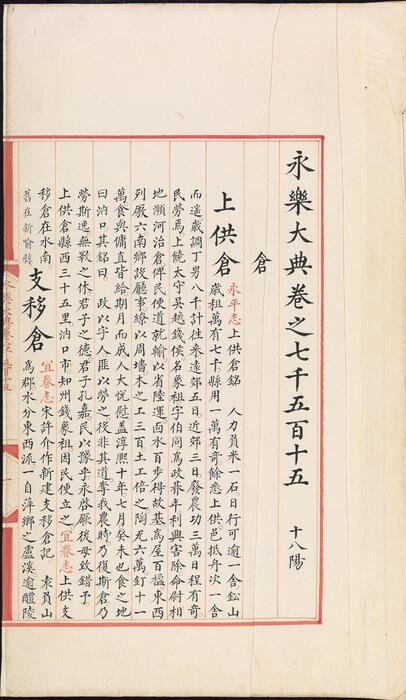 永樂大典卷之七千五百十五 十八陽
倉
上供倉 永平志上供倉銘 人力負米一石日行可逾一舍鉛山
歲租萬有七千縣用一萬有奇餘悉上供邑抵舟次一舍
而遥歲調丁男八千計往來遠郊五日近郊三日發農功三萬日程有奇
民勞焉上饒太守吳越錢侯名象祖字伯同爲政朞年利興害除命尉相
地瀕河治倉俾民便道就輸以省陸運面水百步得故基爲屋百楹東西
列廒六南鄉設廳事繚以周墻木之工三百土工倍之陶瓦六萬釘十一
萬食與傭直皆給期月而成人大悅慰蓋淳熙十年七月癸未也食之地
曰汭口其銘曰 政以字人匪以勞之後非其道奪我農時乃復斯倉乃
勞斯逸無斁之休君子之德君子孔嘉民以豫乎永啓厥後毋敢錯予
上供倉縣西三十五里汭口市知州錢象祖因民便立之宜春志上供支
移倉在水南。
舊在新喻縣
支移倉 宜春志宋許介作新建支移倉記。 袁負山
爲郡水分東西派一自萍鄉之盧溪逾醴陵